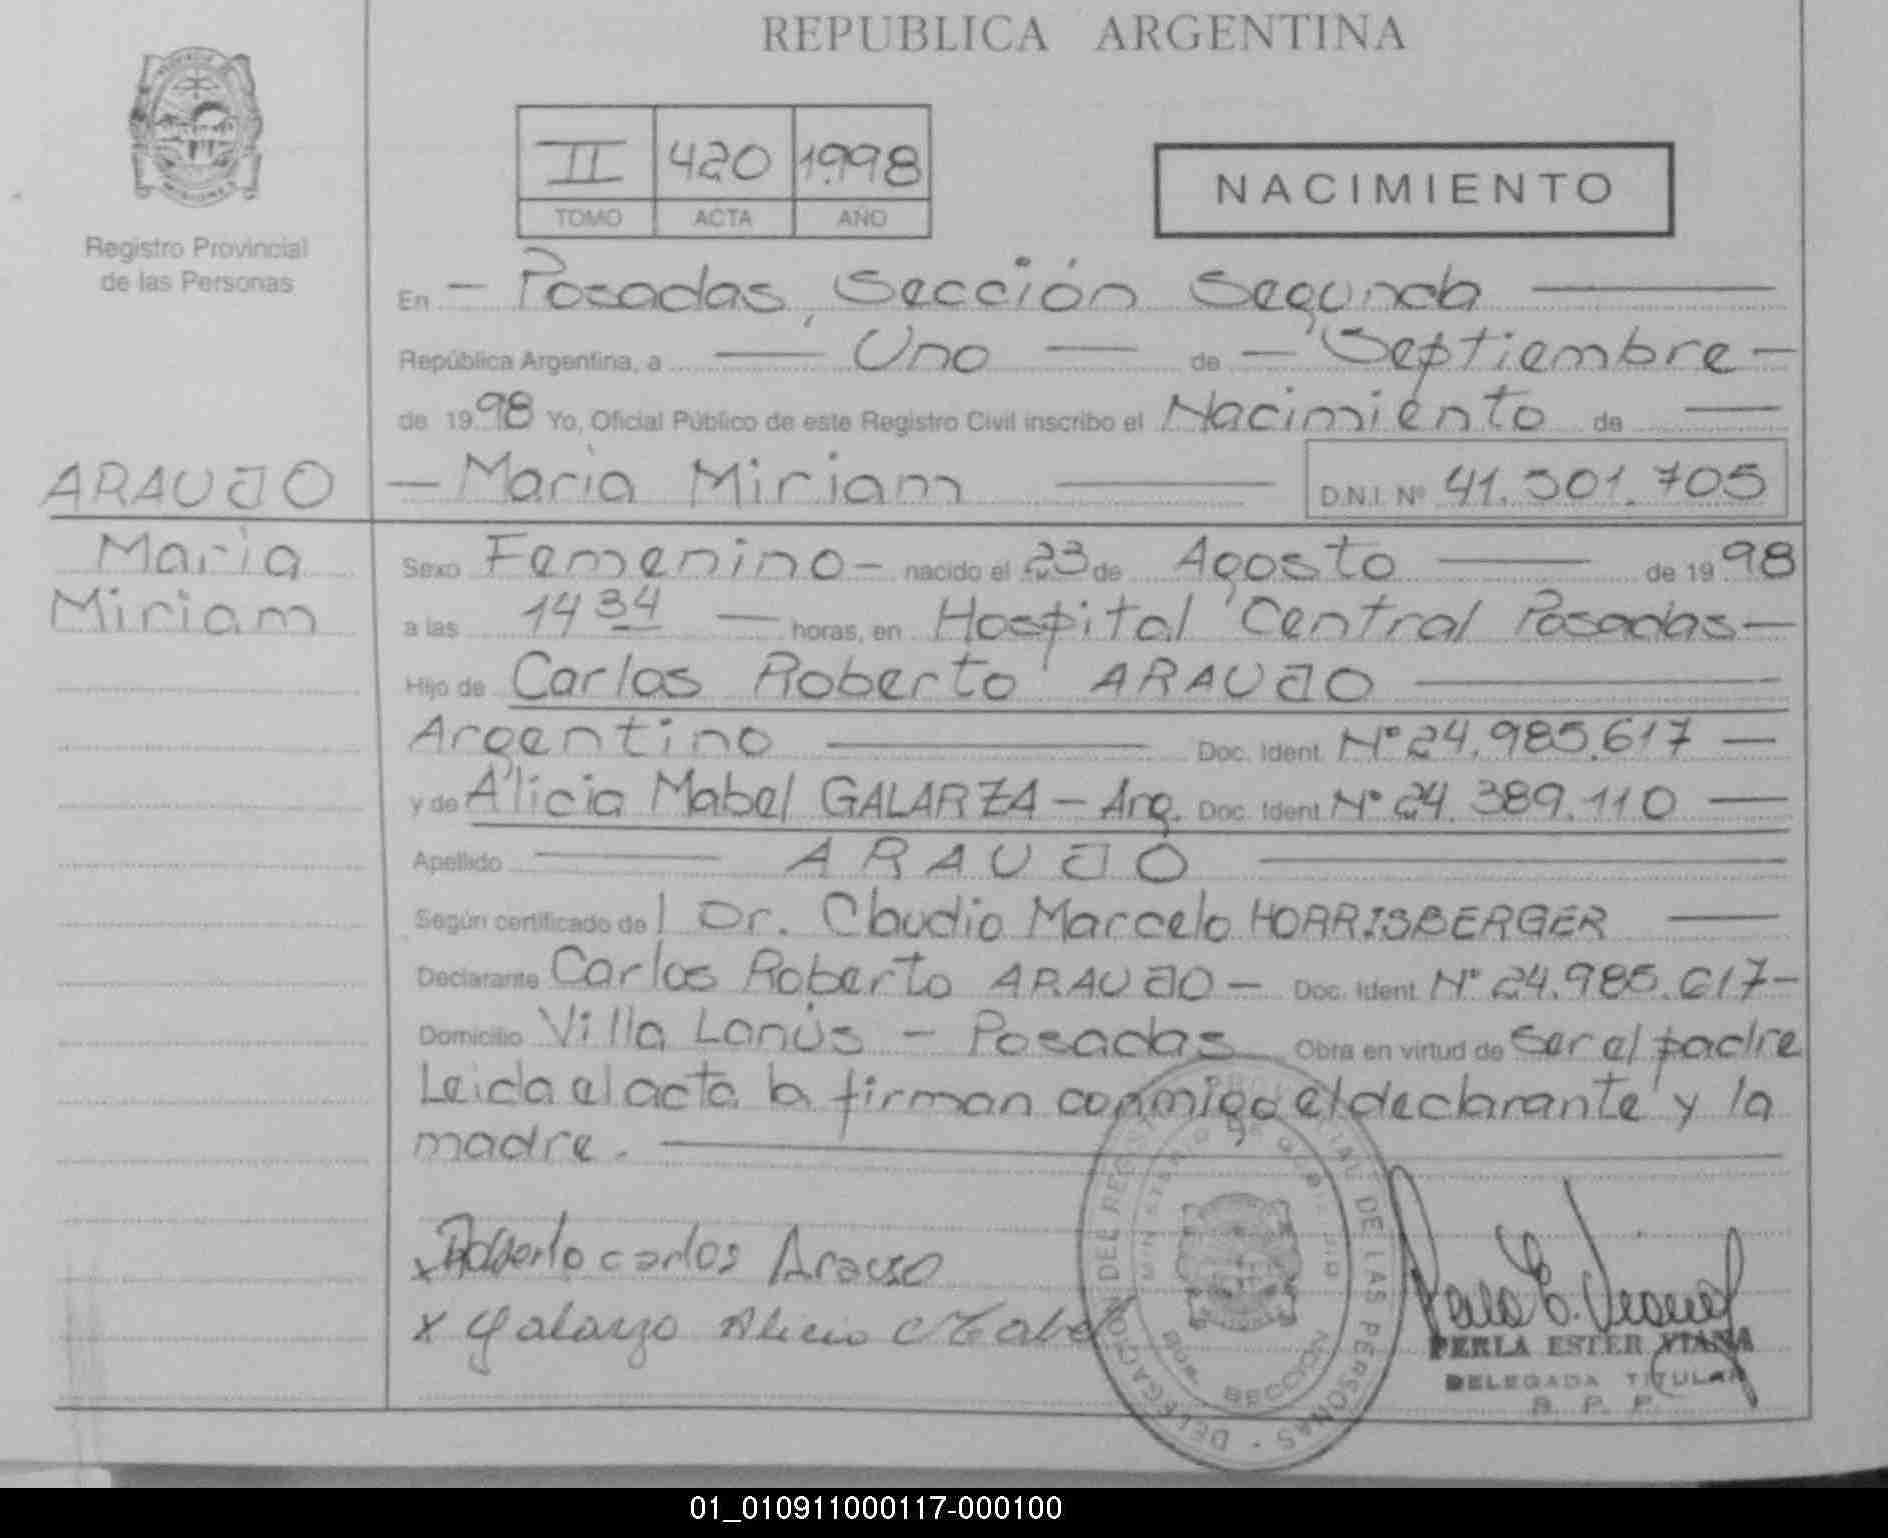 REPUBLICA ARGENTINA
Registro Provincial
de las Personas
II 420 1998
TOMO ACTA AÑO
NACIMIENTO
En - Posadas, Sección Segunda
República Argentina, a Uno de - Septiembre -
de 1998 Yo, Oficial Público de este Registro Civil inscribo el Nacimiento de
ARAUJO
- Maria Miriam D.N.I. Nº 41.301.705
Maria
Miriam
Sexo Femenino - nacido el 23 de Agosto de 1998
a las 14 34 horas, en Hospital Central Posadas -
Hijo de Carlos Roberto ARAUJO
Argentino Doc. Ident. Nº 24.985.617 -
y de Alicia Mabel GALARZA - Arg. Doc. Ident Nº 24.389.110
Apellido ARAUJO
Según certificado del Dr. Claudio Marcelo HORRISBERGER
Declarante Carlos Roberto ARAUJO - Doc. Ident. Nº 24.985.617 -
Domicilio Villa Lanús - Posadas Obra en virtud de ser el padre
Leida el acta la firman conmigo el declarante y la
madre.
x Roberto carlos Araujo
x Galarza Alicia Mabel
DELEGACION DEL REGISTRO PROVINCIAL DE LAS PERSONAS
MINISTERIO DE GOBIERNO
SECCION
PERLA ESTER VIANA
DELEGADA TITULAR
R. P. P.
01_010911000117-000100